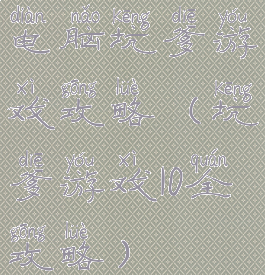 diàn nǎo kēng diē yóu
电脑坑爹游
xì gōng lüè kēng
戏攻略（坑
diē yóu xì quán
爹游戏10全
gōng lüè
攻略）